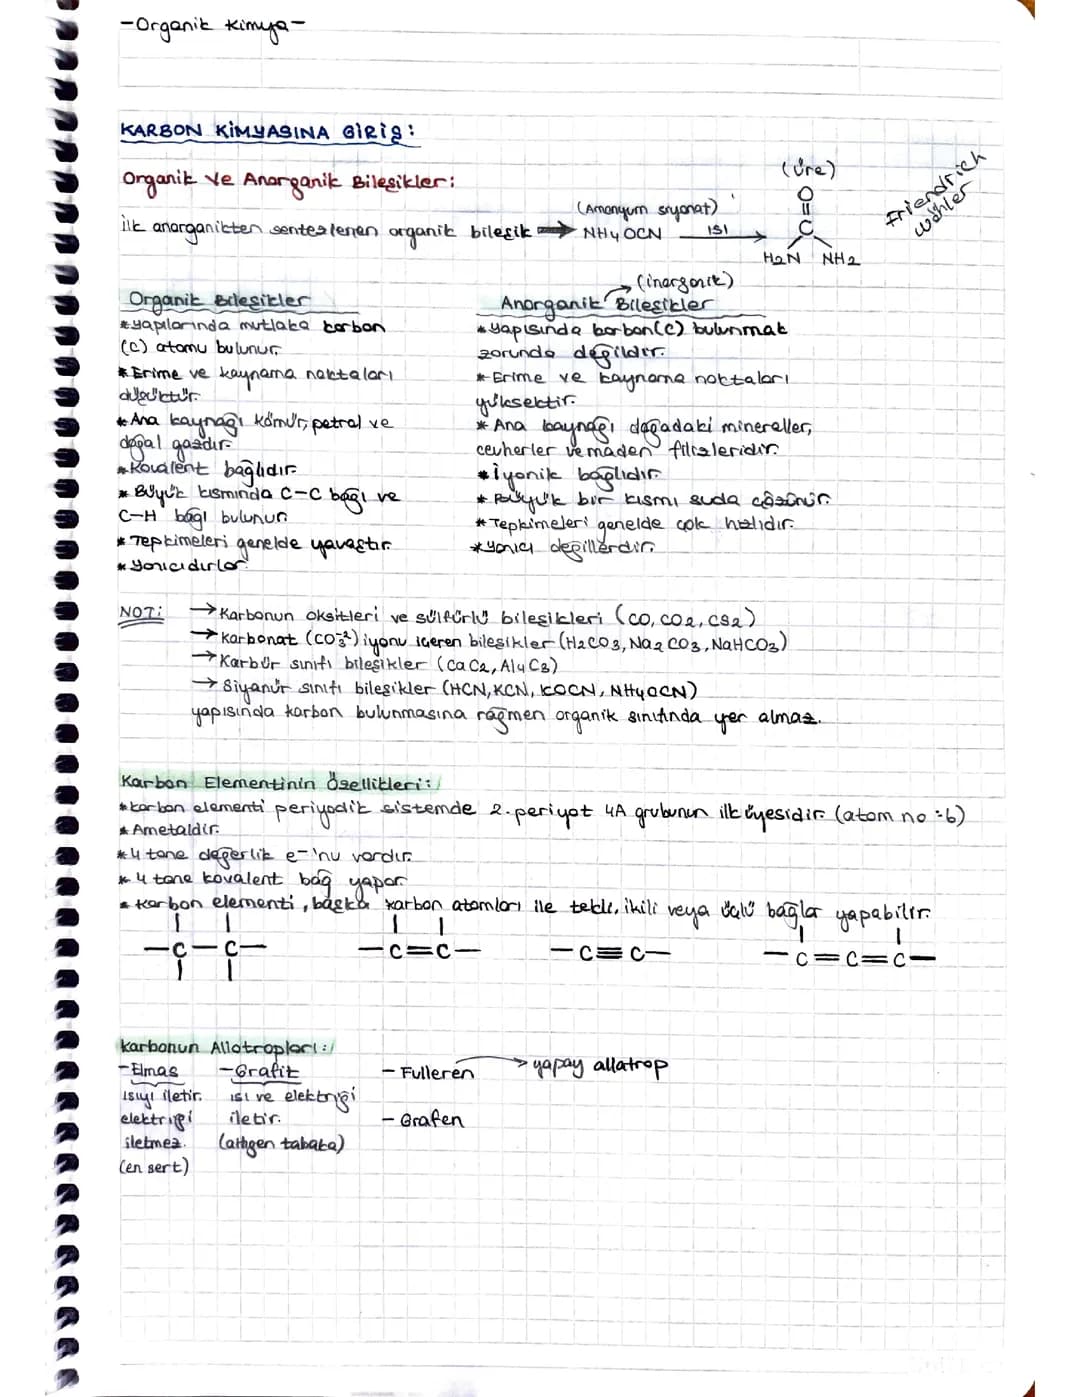 -Organik Kimya-
KARBON KİMYASINA GİRİŞ:
Organik ve Anorganik Bileşikler:
İlk anorganikten sentezlenen organik bileşik → NH4OCN (Amonyum siyonat) ısı → (Üre)
O
C
H2N NH2
Friendrich
wöhler
Organik Bileşikler
*yapılarında mutlaka karbon
(C) atomu bulunur.
*Erime ve kaynama noktaları
düşüktür.
*Ana kaynağı kömür, petrol ve
doğal gazdır.
*Kovalent bağlıdır.
*Büyük kısmında C-C bağı ve
C-H bağı bulunur.
*Tepkimeleri genelde yavaştır.
*yanıcıdırlar.
(inorganik)
Anorganik Bileşikler
*yapısında karbon(C) bulunmak
zorunda değildir.
*Erime ve kaynama noktaları
yüksektir.
*Ana kaynağı doğadaki mineraller,
cevherler ve maden filizleridir.
*İyonik bağlıdır.
*Büyük bir kısmı suda çözünür.
*Tepkimeleri genelde çok hızlıdır.
*yanıcı değillerdir.
NOT: → Karbonun oksitleri ve sülfürlü bileşikleri (CO, CO2, CS2)
→ Karbonat (CO3^2-) iyonu içeren bileşikler (H2CO3, Na2CO3, NaHCO3)
→ Karbür sınıfı bileşikler (CaC2, Al4C3)
→ Siyanür sınıfı bileşikler (HCN, KCN, KOCN, NH4OCN)
yapısında karbon bulunmasına rağmen organik sınıfında yer almaz.
Karbon Elementinin Özellikleri:
*karbon elementi periyodik sistemde 2. periyot 4A grubunun ilk üyesidir. (atom no:6)
*Ametaldir.
*4 tane değerlik e-'nu vardır.
*4 tane kovalent bağ yapar.
*Karbon elementi, başka karbon atomları ile tekli, ikili veya üçlü bağlar yapabilir.
-C-C- -C=C- -C≡C- -C=C=C-
Karbonun Allotropları:
-Elmas
ısıyı iletir.
elektriği
iletmez.
(en sert)
-Grafit
ısı ve elektriği
iletir.
(altıgen tabaka)
-Fulleren → yapay allatrop
-Grafen